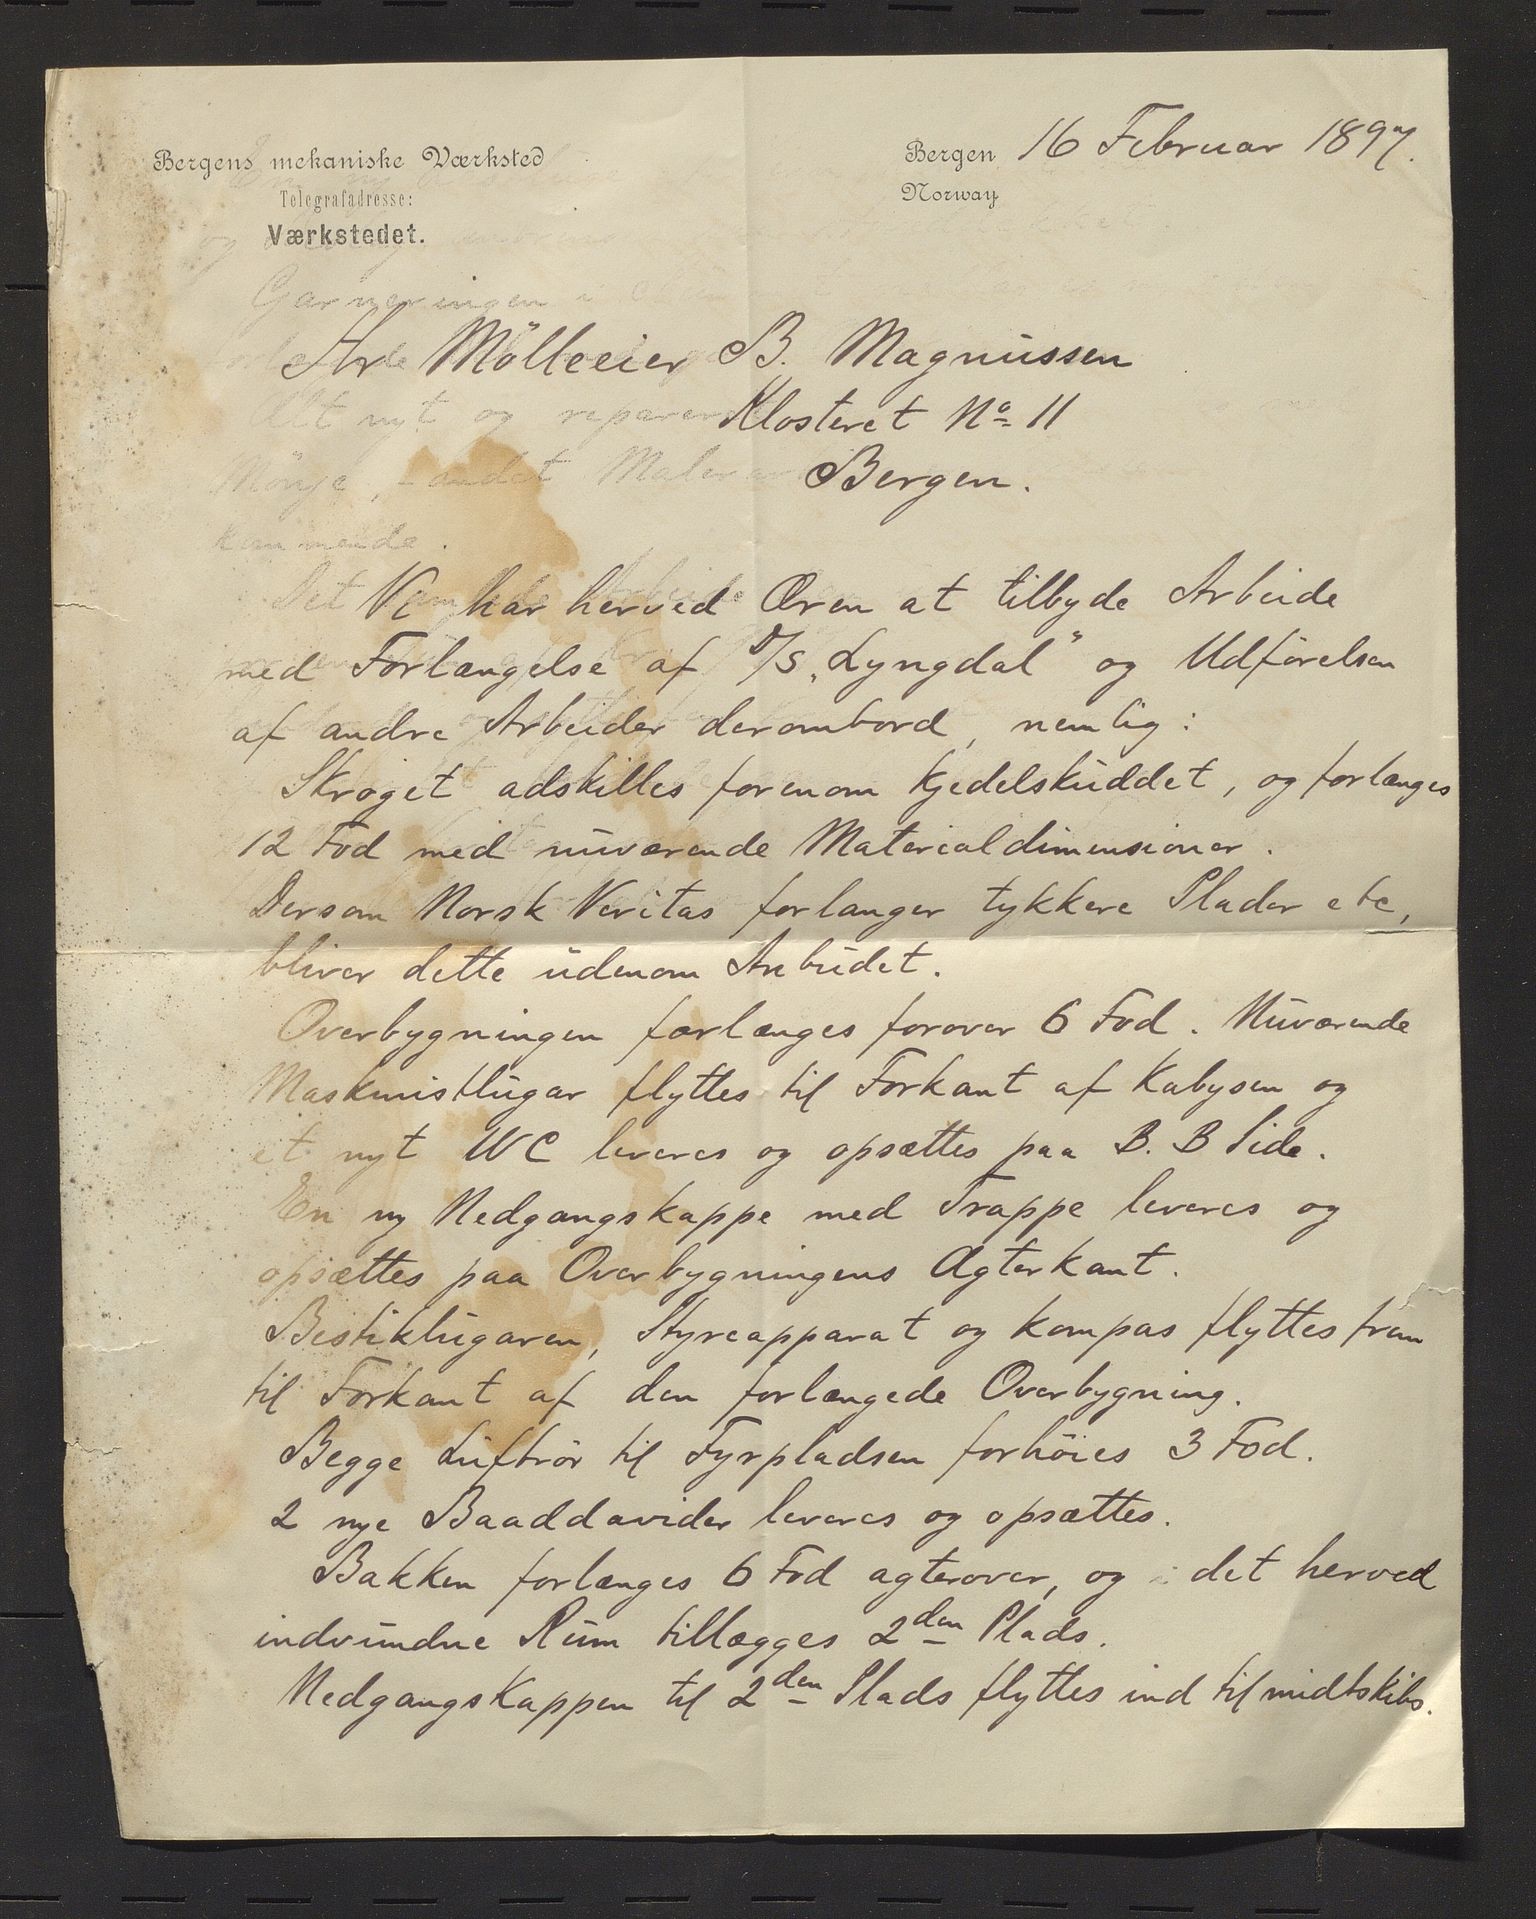 Bergens mekaniske Værksted
Telegrafadresse:
Værkstedet.
Bergen 16 Februar 1897.
Norway
Hr Mölleeier B. Magnussen
Klosteret No 11
Bergen.
Vi har herved Æren at tilbyde Arbeide
med Forlængelse af D/S „Lyngdal" og Udförelsen
af andre Arbeider derombord, nemlig:
Skroget adskilles forenom Kjedelskuddet, og forlænges
12 Fod med nuværende Materialdimensioner.
Dersom Norsk Veritas forlanger tykkere Plader etc,
bliver dette udenom Anbudet.
Overbygningen forlænges forover 6 Fod. Nuværende
Maskinistlugar flyttes til Forkant af Kabysen og
et nyt WC leveres og opsættes paa B. B Side.
En ny Nedgangskappe med Trappe leveres og
opsættes paa Overbygningens Agterkant.
Bestiklugaren, Styreapparat og Kompas flyttes frem
til Forkant af den forlængede Overbygning.
Begge Luftrör til Fyrpladsen forhöies 3 Fod.
2 nye Baaddavider leveres og opsættes.
Bakken forlænges 6 Fod agterover, og i det herved
indvundne Rum tillægges 2den Plads.
Nedgangskappen til 2den Plads flyttes ind til midtskibs.